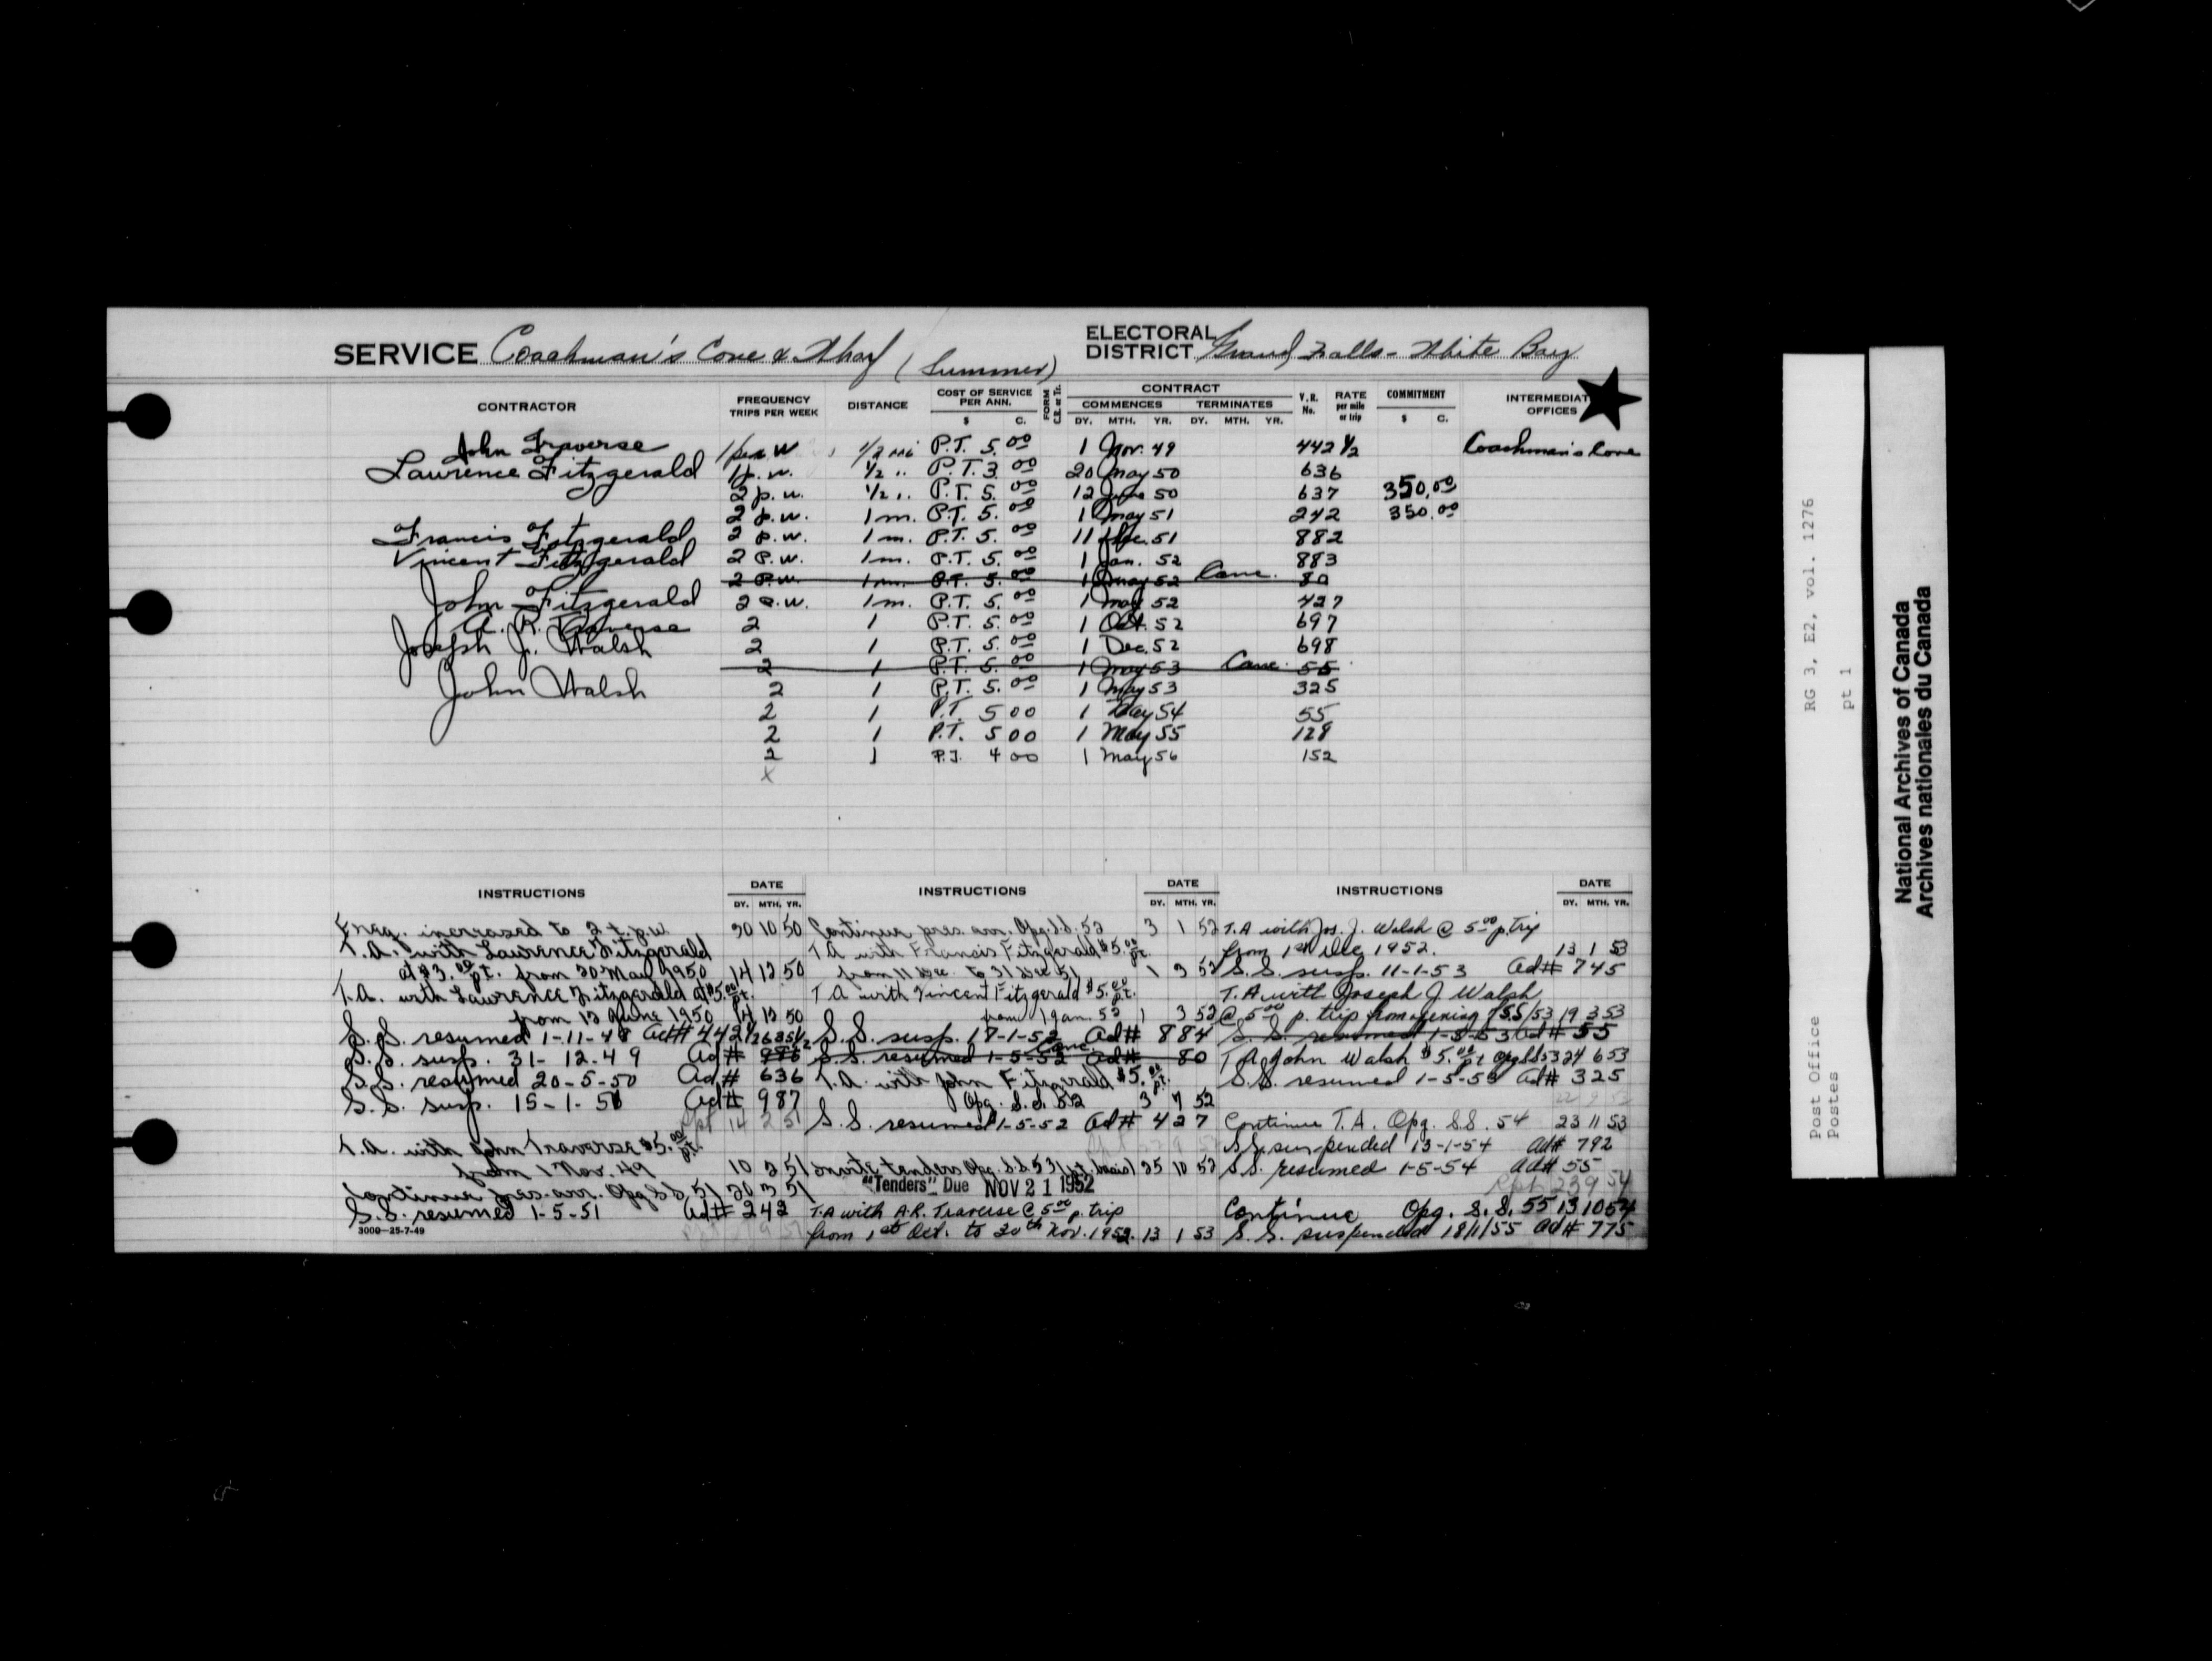 SERVICE Coachman's Cove & Wharf (Summer) ELECTORAL DISTRICT Grand Falls - White Bay
CONTRACTOR FREQUENCY TRIPS PER WEEK DISTANCE COST OF SERVICE PER ANN. $ C. FORM C.R. or Tr. CONTRACT COMMENCES DY. MTH. YR. TERMINATES DY. MTH. YR. V.R. No. RATE per mile or trip COMMITMENT $ C. INTERMEDIAT OFFICES
John Traverse 1 per W 1/2 mi P.T. 5.00 1 Nov. 49 442 1/2 Coachman's Cove
Lawrence Fitzgerald 1 p.w. 1/2 " P.T. 3.00 20 May 50 636
2 p.w. 1/2 " P.T. 5.00 12 June 50 637 350.00
2 p.w. 1 m. P.T. 5.00 1 May 51 242 350.00
Francis Fitzgerald 2 p.w. 1 m. P.T. 5.00 11 Dec. 51 882
Vincent Fitzgerald 2 P.W. 1 m. P.T. 5.00 1 Jan. 52 883
2 P.W. 1 m. P.T. 5.00 1 May 52 Canc. 80
John Fitzgerald 2 P.W. 1 m. P.T. 5.00 1 May 52 427
A. R. Traverse 2 1 P.T. 5.00 1 Oct. 52 697
Joseph J. Walsh 2 1 P.T. 5.00 1 Dec. 52 698
2 1 P.T. 5.00 1 May 53 Canc. 55
John Walsh 2 1 P.T. 5.00 1 May 53 325
2 1 P.T. 5 00 1 May 54 55
2 1 P.T. 5 00 1 May 55 128
2 1 P.T. 4 00 1 May 56 152
X
INSTRUCTIONS DATE DY. MTH. YR.
Freq. increased to 2 t.p.w. 30 10 50
T.A. with Lawrence Fitzgerald
at $3.00 p.t. from 20 May 1950 14 12 50
T.A. with Lawrence Fitzgerald at $5.00 p.t.
from 12 June 1950 14 12 50
S.S. resumed 1-11-49 Ad# 442 1/2
S.S. susp. 31-12-49 Ad#
S.S. resumed 20-5-50 Ad# 636
S.S. susp. 15-1-51 Ad# 987
Rpt 14 2 51
T.A. with John Traverse $5.00 p.t.
from 1 Nov. 49 10 2 51
Continue pres. arr. Opg S.S. 51 20 3 51
S.S. resumed 1-5-51 Ad# 242
3000-25-7-49
INSTRUCTIONS DATE DY. MTH. YR.
Continue pres. arr. Opg. S.S. 52 3 1 52
T.A. with Francis Fitzgerald $5.00 p.t.
from 11 Dec. to 31 Dec 51 1 3 52
T.A. with Vincent Fitzgerald $5.00 p.t.
from 1 Jan. 52 1 3 52
S.S. susp. 17-1-52 Ad# 884
S.S. resumed 1-5-52 Canc. Ad# 80
T.A. with John Fitzgerald $5.00 p.t.
Opg. S.S. 52 3 7 52
S.S. resumed 1-5-52 Ad# 427
Invite tenders Opg. S.S. 53 (p.t. basis) 25 10 52
"Tenders" Due NOV 21 1952
T.A. with A.R. Traverse @ 5.00 p. trip
from 1st Oct. to 30th Nov. 1952. 13 1 53
INSTRUCTIONS DATE DY. MTH. YR.
T.A. with Jos. J. Walsh @ 5.00 p. trip
from 1st Dec 1952. 13 1 53
S.S. susp. 11-1-53 Ad# 745
T.A. with Joseph J. Walsh
@ 5.00 p. trip from opening SS/53 19 3 53
S.S. resumed 1-5-53 Ad# 55
T.A. John Walsh $5.00 p.t. opg S.S 53 24 6 53
S.S. resumed 1-5-53 Ad# 325
Continue T.A. Opg. S.S. 54 23 11 53
S.S. suspended 13-1-54 Ad# 792
S.S. resumed 1-5-54 Ad# 55
Rpt 23 9 54
Continue Opg. S.S. 55 13 10 54
S.S. suspended 18/1/55 Ad# 775
RG 3, E2, vol. 1276
pt 1
Post Office
Postes
National Archives of Canada
Archives nationales du Canada